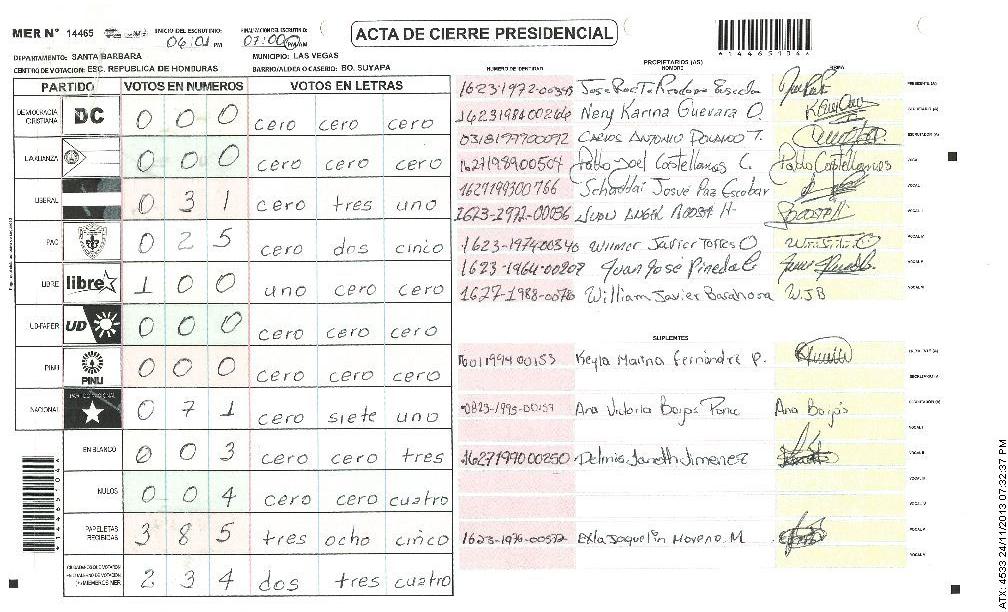 MER N° 14465 INICIO DEL ESCRUTINIO: 06:01 PM FINALIZACION DEL ESCRUTINIO: 07:00 PM/AM
ACTA DE CIERRE PRESIDENCIAL
DEPARTAMENTO: SANTA BARBARA MUNICIPIO: LAS VEGAS
CENTRO DE VOTACION: ESC. REPUBLICA DE HONDURAS BARRIO/ALDEA O CASERIO: BO. SUYAPA
PARTIDO VOTOS EN NUMEROS VOTOS EN LETRAS
DEMOCRACIA CRISTIANA DC 0 0 0 cero cero cero
LA ALIANZA 0 0 0 cero cero cero
LIBERAL 0 3 1 cero tres uno
PAC 0 2 5 cero dos cinco
LIBRE libre 1 0 0 uno cero cero
UD-FAPER UD 0 0 0 cero cero cero
PINU PINU 0 0 0 cero cero cero
NACIONAL 0 7 1 cero siete uno
EN BLANCO 0 0 3 cero cero tres
NULOS 0 0 4 cero cero cuatro
PAPELETAS RECIBIDAS 3 8 5 tres ocho cinco
2 3 4 dos tres cuatro
NUMERO DE IDENTIDAD PROPIETARIOS (AS) NOMBRE FIRMA
1623-1972-00345 Jose
Nery Karina Guevara O.
0318197700092 Carlos Antonio Polanco T.
1627198900504 Pablo Joel Castellanos C. Pablo Castellanos
1627199300766 Schaddai Josue Paz Escobar
1623-1972-00036 Juan Angel Acosta H
1623-1974-00340 Wilmer Javier Torres O
1623-1964-00207 Juan José Pineda
1627-1988-0076 William Javier Barahona W.J.B
SUPLENTES
1601199400153 Keyla Marina Fernández P.
0825-1995-00157 Ana Victoria Borjas Ponce Ana Borjas
1627199000250 Delmis Janeth Jimenez
1623-1976-00572 Exla Joquelin Moreno. M
ATX: 4533 24/11/2013 07:32:37 PM